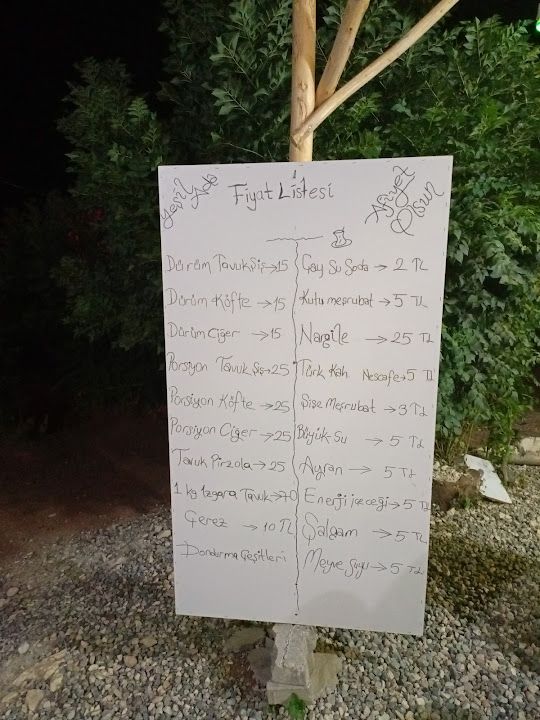 Yeşil Vadi
Fiyat Listesi
Afiyet
Olsun
Dürüm Tavuk Şiş → 15
Dürüm Köfte → 15
Dürüm Ciğer → 15
Porsiyon Tavuk Şiş → 25
Porsiyon Köfte → 25
Porsiyon Ciğer → 25
Tavuk Pirzola → 25
1 kg Izgara Tavuk → 70
Çerez → 10 TL
Dondurma Çeşitleri
Çay Su Soda → 2 TL
Kutu meşrubat → 5 TL
Nargile → 25 TL
Türk Kah. Nescafe → 5 TL
Şişe Meşrubat → 3 TL
Büyük Su → 5 TL
Ayran → 5 TL
Enerji içeceği → 5 TL
Şalgam → 5 TL
Meyve Suyu → 5 TL